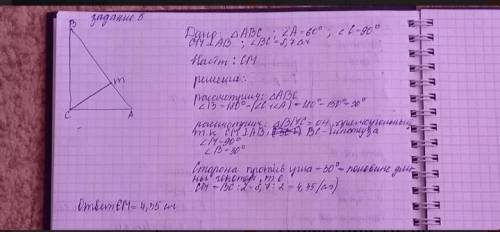 задание 5
B
M
C
A
Дано: △ABC; ∠A=60°; ∠C=90°
CM⊥AB; ∠BC=8,7 см
Найти: CM
решение:
рассмотрим: △ABC
∠B=180°-(∠C+∠A)=180°-150°=30°
рассмотрим: △BMC
т.к CM⊥AB, BC-гипотенуза
∠M=90°
∠B=30°
Сторона против угла-30°=половине
CM=BC:2=8,7:2=4,35(см)
Ответ CM=4,35 см